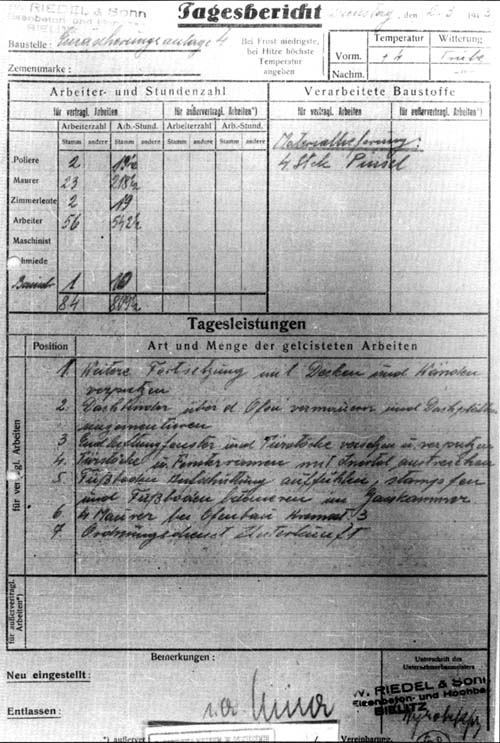 W. RIEDEL & SOHN
Eisenbeton- und Hochbau
BIELITZ
Tagesbericht
Dienstag, den 2. 3. 1943
Baustelle: Einäscherungsanlage 4
Zementmarke:
Bei Frost niedrigste,
bei Hitze höchste
Temperatur
angeben
Temperatur
Witterung
Vorm. +4 Trübe
Nachm. — " —
Arbeiter- und Stundenzahl
Verarbeitete Baustoffe
für vertragl. Arbeiten
für außervertragl. Arbeiten*)
für vertragl. Arbeiten
für außervertragl. Arbeiten*)
Arbeiterzahl Arb.-Stund. Arbeiterzahl Arb.-Stund.
Stamm andere Stamm andere Stamm andere Stamm andere
Materiallieferung:
4 Stck Pinsel
Poliere 2 19½
Maurer 23 218½
Zimmerleute 2 19
Arbeiter 56 542½
Maschinist
Schmiede
1 10
84 809½
Tagesleistungen
Position
Art und Menge der geleisteten Arbeiten
für vertragl. Arbeiten
1. Weitere Fortsetzung mit Decken und Wänden
verputzen
2. über d. Ofen vermauern und
3. und Türstöcke versetzen u. verputzen
4. Türstöcke u. Fensterramen mit Inertol anstreichen
5. Fußboden auffühlen, stampfen
und Fußboden betonieren im Gasskammer
6. 4 Maurer bei Ofenbau Kremat. 3
7. Ordnungsdienst Unterkunft
für außervertragl. Arbeiten*)
Bemerkungen:
Neu eingestellt:
Entlassen:
Unterschrift des
Unternehmerbaumeisters
W. RIEDEL & SOHN
Eisenbeton- und Hochbau
BIELITZ
*) außerer
Vereinbarung.